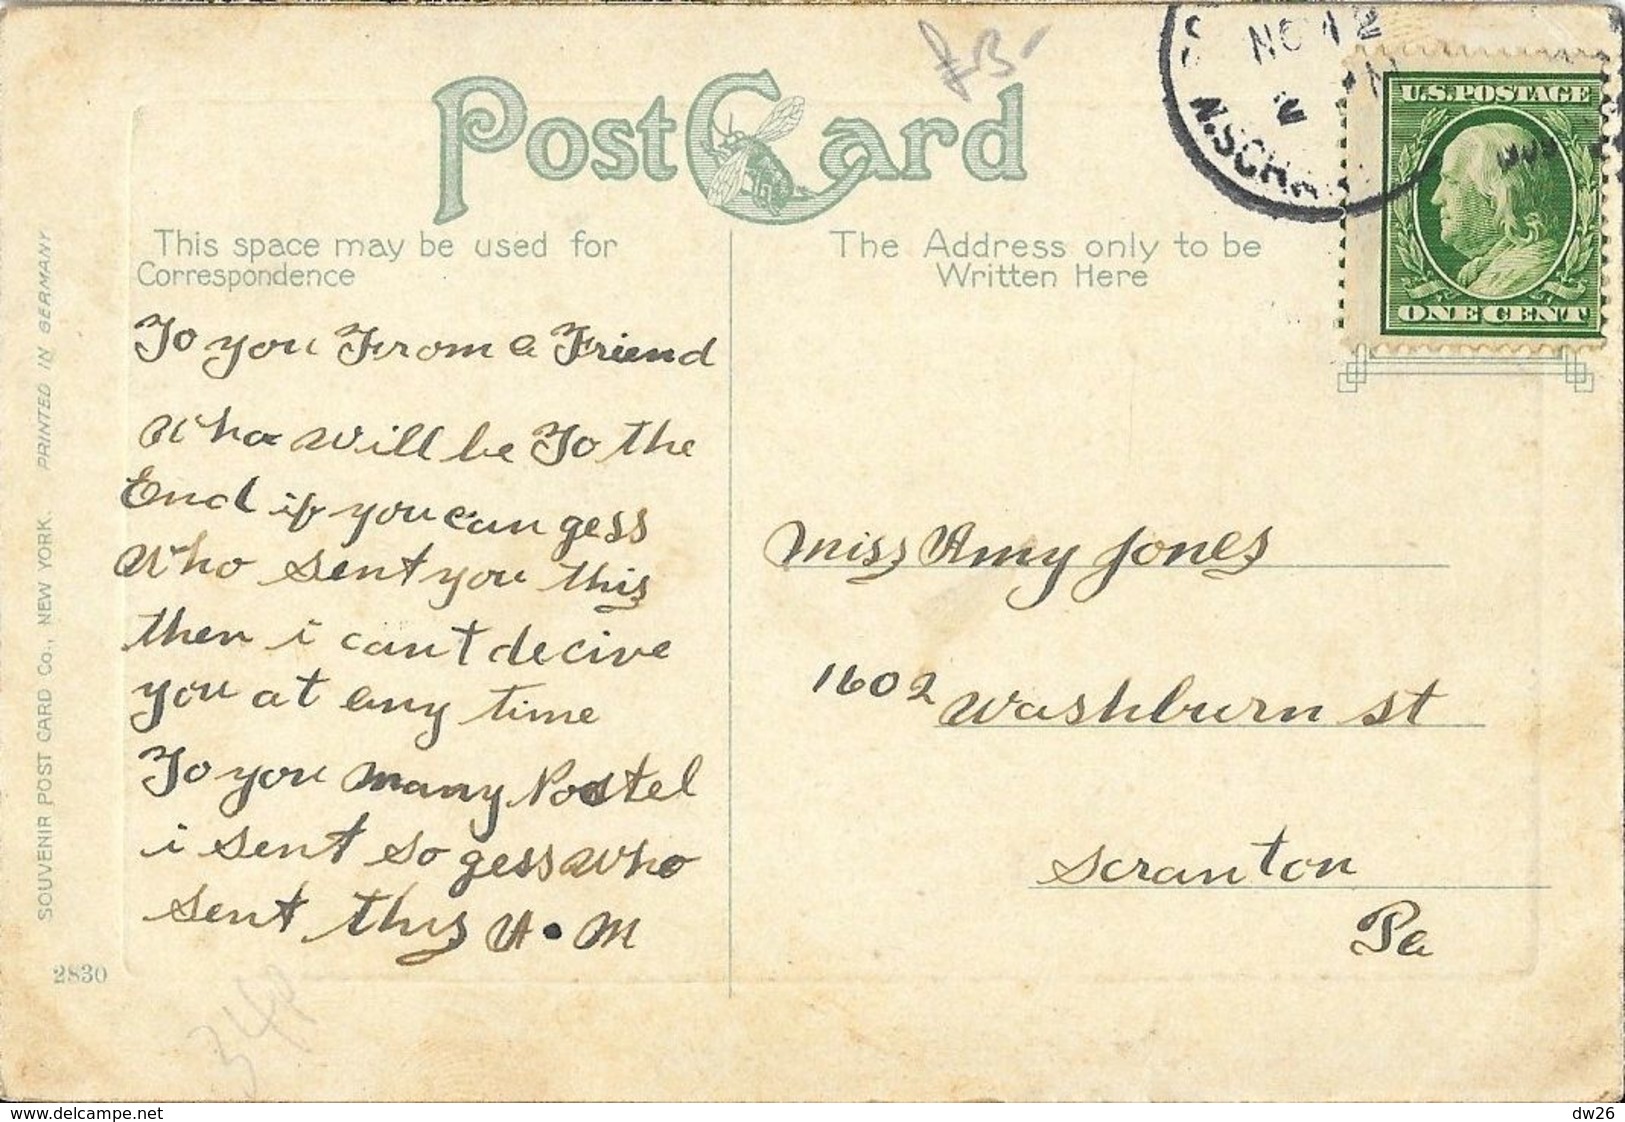 Post Card
This space may be used for
Correspondence
The Address only to be
Written Here
NO 12
2
N.SCRA
U.S.POSTAGE
ONE CENT
To you From a Friend
Who will be To the
End if you can gess
Who sent you this
then i cant decive
you at any time
To you many Postel
i sent so gess who
sent this A. M
Miss Amy Jones
1602 Washburn st
Scranton
Pa
SOUVENIR POST CARD Co., NEW YORK. PRINTED IN GERMANY
2830
www.delcampe.net
dw26